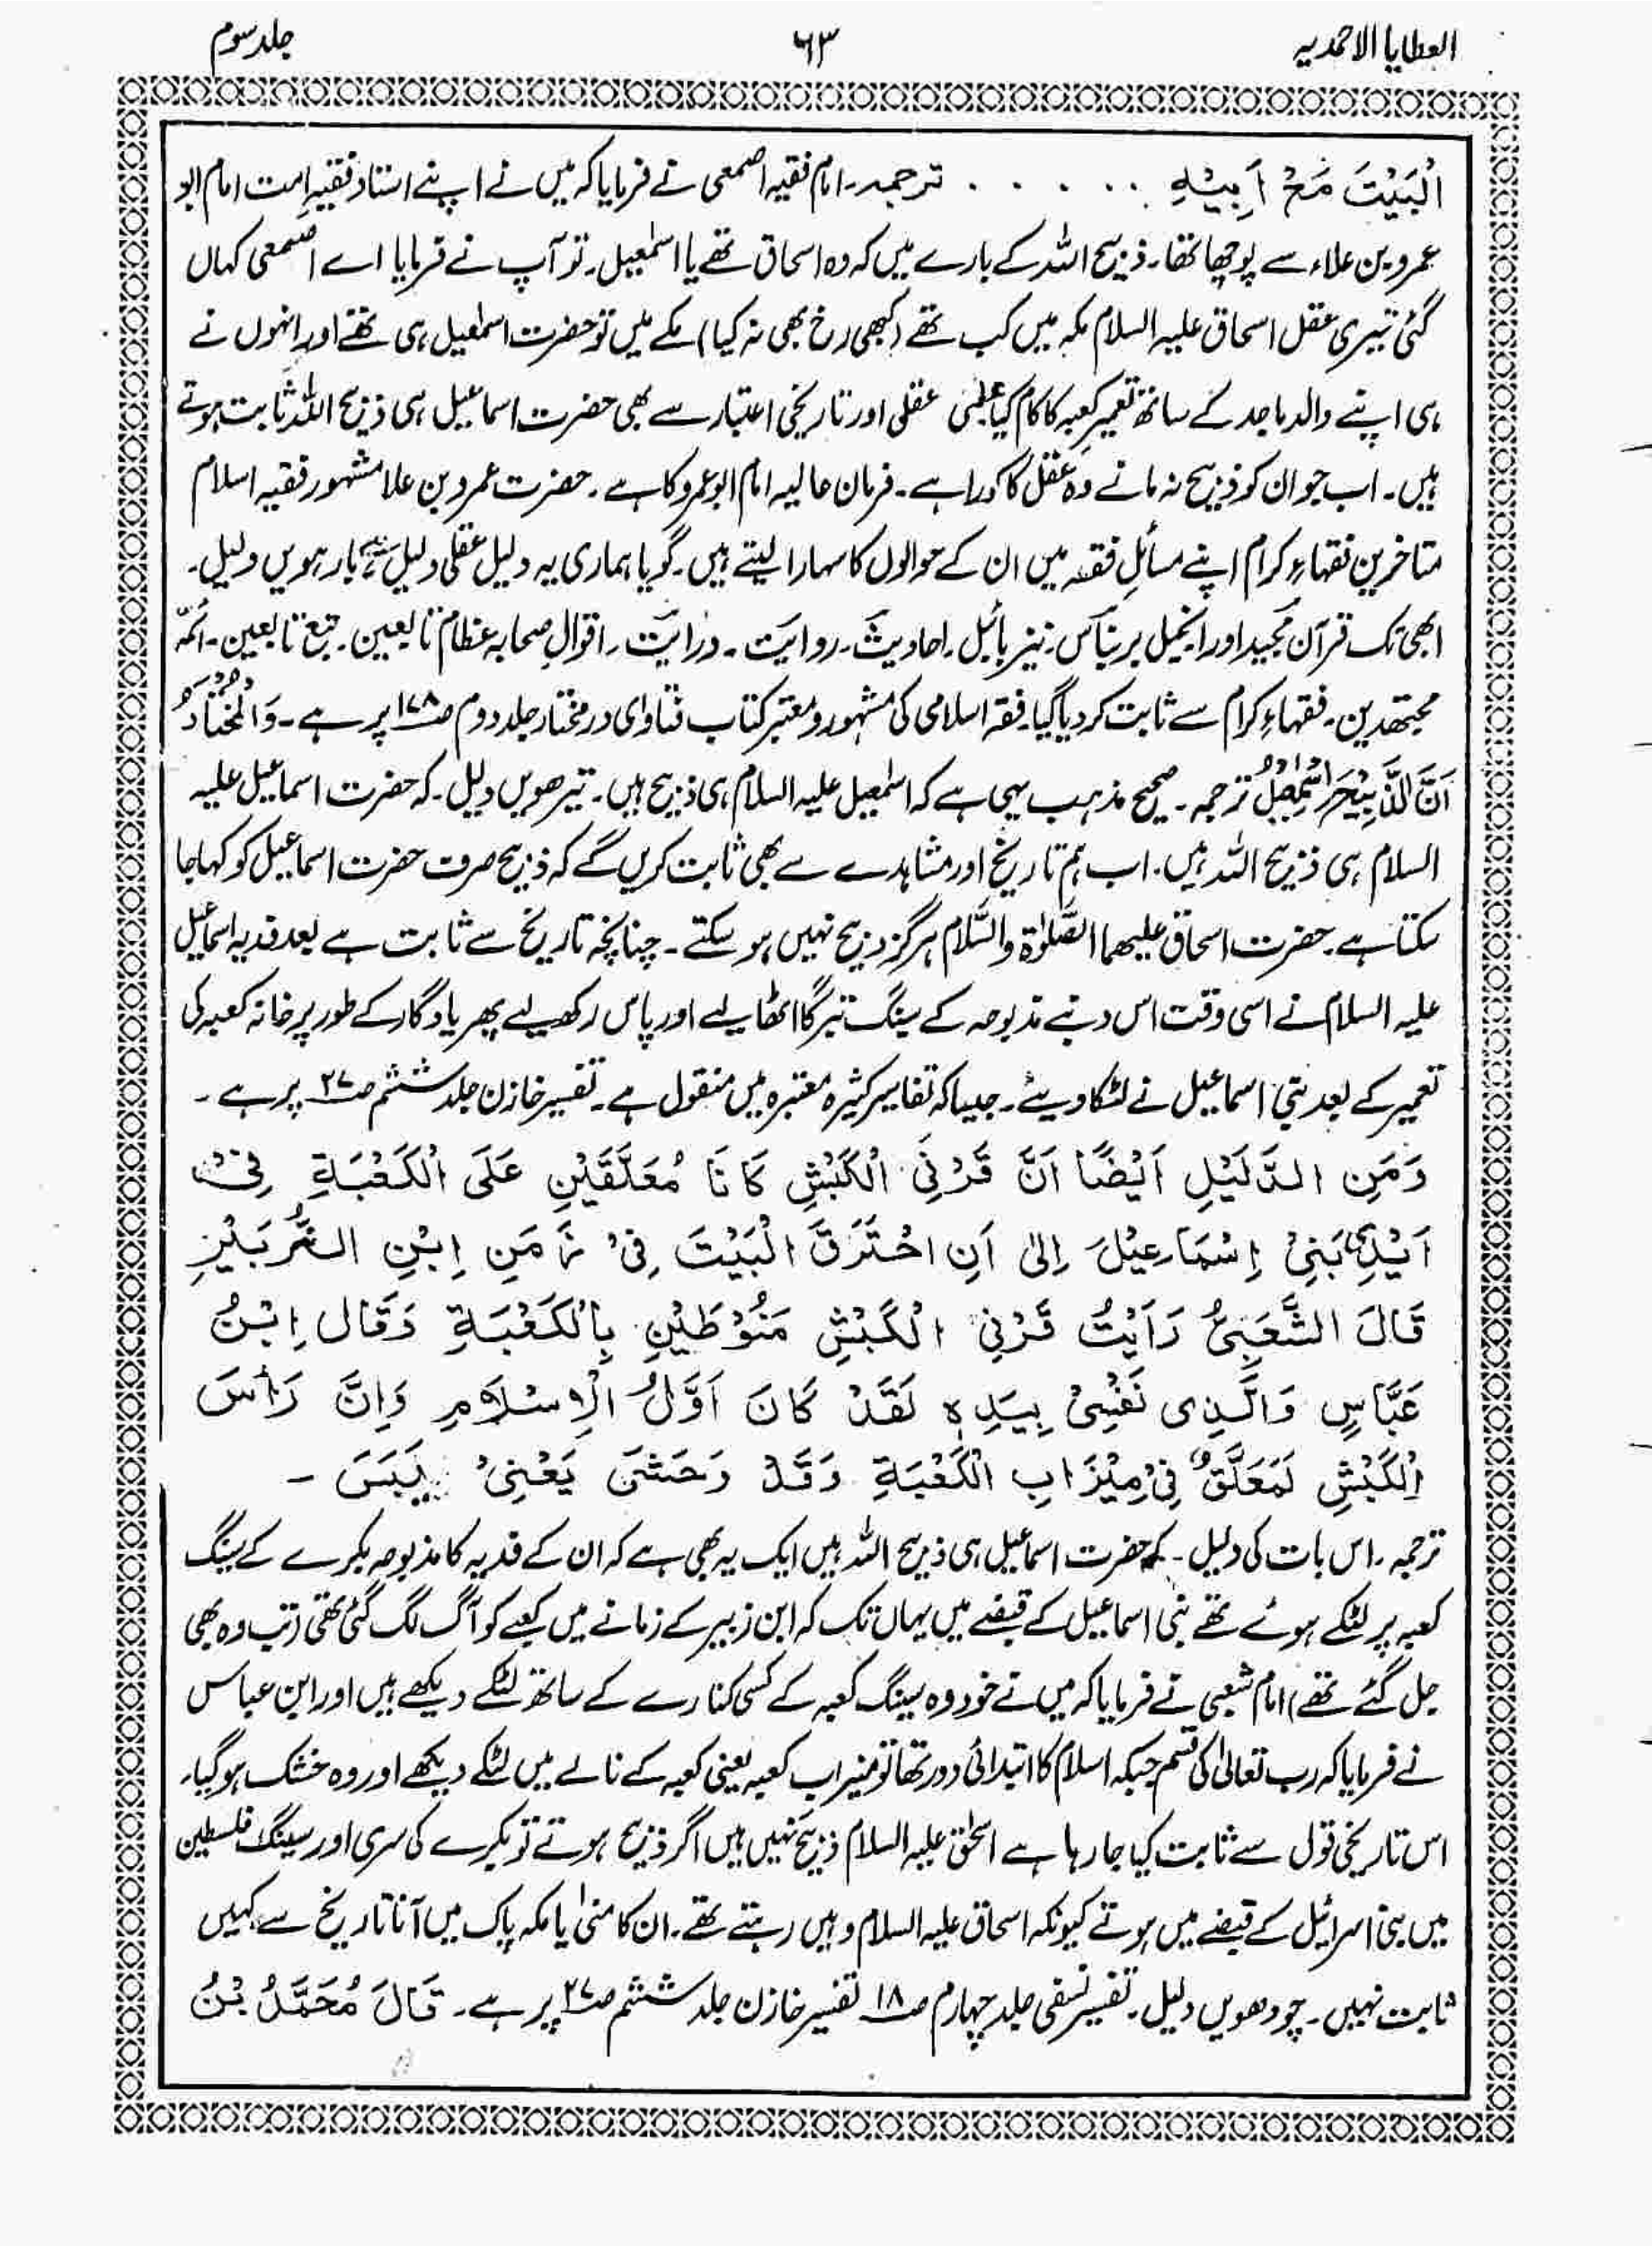 العطایا الاحمدیہ
۶۳
جلد سوم
الْبَيْتَ مَعَ اَبِيْهِ . . . . . . ترجمہ۔ امام فقیہ اصمعی نے فرمایا کہ میں نے اپنے استاد فقیہِ امت امام ابو
عمرو بن علاء سے پوچھا تھا۔ ذبیح اللہ کے بارے میں کہ وہ اسحاق تھے یا اسمٰعیل۔ تو آپ نے فرمایا اے اصمعی کہاں
گئی تیری عقل اسحاق علیہ السلام مکہ میں کب تھے (کبھی رخ بھی نہ کیا) مکے میں تو حضرت اسمٰعیل ہی تھے اور انہوں نے
ہی اپنے والد ماجد کے ساتھ تعمیرِ کعبہ کا کام کیا یعنی عقلی اور تاریخی اعتبار سے بھی حضرت اسماعیل ہی ذبیح اللہ ثابت ہوتے
ہیں۔ اب جو ان کو ذبیح نہ مانے وہ عقل کا کورا ہے۔ فرمان عالیہ امام ابو عمرو کا ہے۔ حضرت عمرو بن علا مشہور فقیہ اسلام
متاخرین فقہاءِ کرام اپنے مسائلِ فقہ میں ان کے حوالوں کا سہارا لیتے ہیں۔ گویا ہماری یہ دلیل عقلی دلیل ہے بارہویں دلیل۔
ابھی تک قرآن مجید اور انجیل برنباس۔ نیز بائبل۔ احادیث۔ روایت۔ درایت۔ اقوالِ صحابہ عظام تابعین۔ تبع تابعین۔ ائمہ
مجتہدین۔ فقہاءِ کرام سے ثابت کر دیا گیا۔ فقہ اسلامی کی مشہور و معتبر کتاب فتاوای درمختار جلد دوم صـ۱۷۸ پر ہے۔ وَالْمُخْتَارُ
اَنَّ الذَّبِيْحَ اِسْمٰعِيْلُ ترجمہ۔ صحیح مذہب یہی ہے کہ اسمٰعیل علیہ السلام ہی ذبیح ہیں۔ تیرھویں دلیل۔ کہ حضرت اسماعیل علیہ
السلام ہی ذبیح اللہ ہیں۔ اب ہم تاریخ اور مشاہدے سے بھی ثابت کریں گے کہ ذبیح صرف حضرت اسماعیل کو کہا جا
سکتا ہے۔ حضرت اسحاق علیھما الصَّلوٰۃ والسَّلام ہرگز ذبیح نہیں ہو سکتے۔ چنانچہ تاریخ سے ثابت ہے بعد فدیہ اسماعیل
علیہ السلام نے اسی وقت اس دنبے مذبوحہ کے سینگ تبرگا اٹھا لیے اور پاس رکھ لیے پھر یادگار کے طور پر خانہ کعبہ کی
تعمیر کے بعد بنی اسماعیل نے لٹکا دیئے۔ جیسا کہ تفاسیر کثیرہ معتبرہ میں منقول ہے۔ تفسیر خازن جلد ششم صـ۲۷ پر ہے۔
وَمَنِ الدَّلَيْلِ اَيْضًا اَنَّ قَرْنِي الْكَبْشِ كَانَا مُعَلَّقَيْنِ عَلَى الْكَعْبَةِ فِيْ
اَيْدِيْ بَنِيْ اِسْمَاعِيْلَ اِلٰى اَنِ احْتَرَقَ الْبَيْتَ فِيْ زَمَنِ اِبْنِ الزُّبَيْرِ
قَالَ الشَّعَبِيُّ رَاَيْتُ قَرْنِيِ الْكَبْشِ مَنُوْطَيْنِ بِالْكَعْبَةِ وَقَالَ اِبْنُ
عَبَّاسٍ وَالَّذِى نَفْسِىْ بِيَدِهٖ لَقَدْ كَانَ اَوَّلُ الْاِسْلَامِ وَاِنَّ رَاْسَ
الْكَبْشِ لَمُعَلَّقٌ فِيْ مِيْزَابِ الْكَعْبَةِ وَقَدْ وَحَشَى يَعْنِىْ يَبَسَ ۔
ترجمہ۔ اس بات کی دلیل۔ کہ حضرت اسماعیل ہی ذبیح اللہ ہیں ایک یہ بھی ہے کہ ان کے فدیہ کا مذبوحہ بکرے کے سینگ
کعبہ پر لٹکے ہوئے تھے بنی اسماعیل کے قبضے میں یہاں تک کہ ابن زبیر کے زمانے میں کعبے کو آگ لگ گئی تھی (تب وہ بھی
جل گئے تھے) امام شعبی نے فرمایا کہ میں نے خود وہ سینگ کعبہ کے کسی کنارے کے ساتھ لٹکے دیکھے ہیں اور ابن عباس
نے فرمایا کہ رب تعالیٰ کی قسم جبکہ اسلام کا ابتدائی دور تھا تو میزاب کعبہ یعنی کعبہ کے نالے میں لٹکے دیکھے اور وہ خشک ہو گیا۔
اس تاریخی قول سے ثابت کیا جا رہا ہے اسحٰق علیہ السلام ذبیح نہیں ہیں اگر ذبیح ہوتے تو بکرے کی سری اور سینگ فلسطین
میں بنی اسرائیل کے قبضے میں ہوتے کیونکہ اسحاق علیہ السلام وہیں رہتے تھے۔ ان کا منیٰ یا مکہ پاک میں آنا تاریخ سے کہیں
ثابت نہیں۔ چودھویں دلیل۔ تفسیر نسفی جلد چہارم صـ۱۸ تفسیر خازن جلد ششم صـ۲۷ پر ہے۔ قَالَ مُحَمَّدُ بْنُ